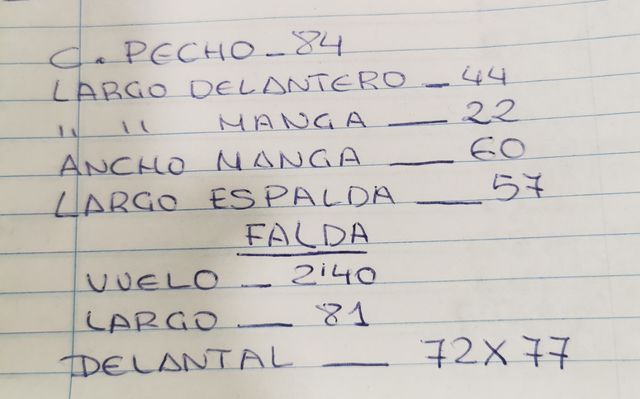 C. PECHO - 84
LARGO DELANTERO - 44
" " MANGA — 22
ANCHO MANGA — 60
LARGO ESPALDA — 57
FALDA
VUELO - 2'40
LARGO — 81
DELANTAL — 72X77